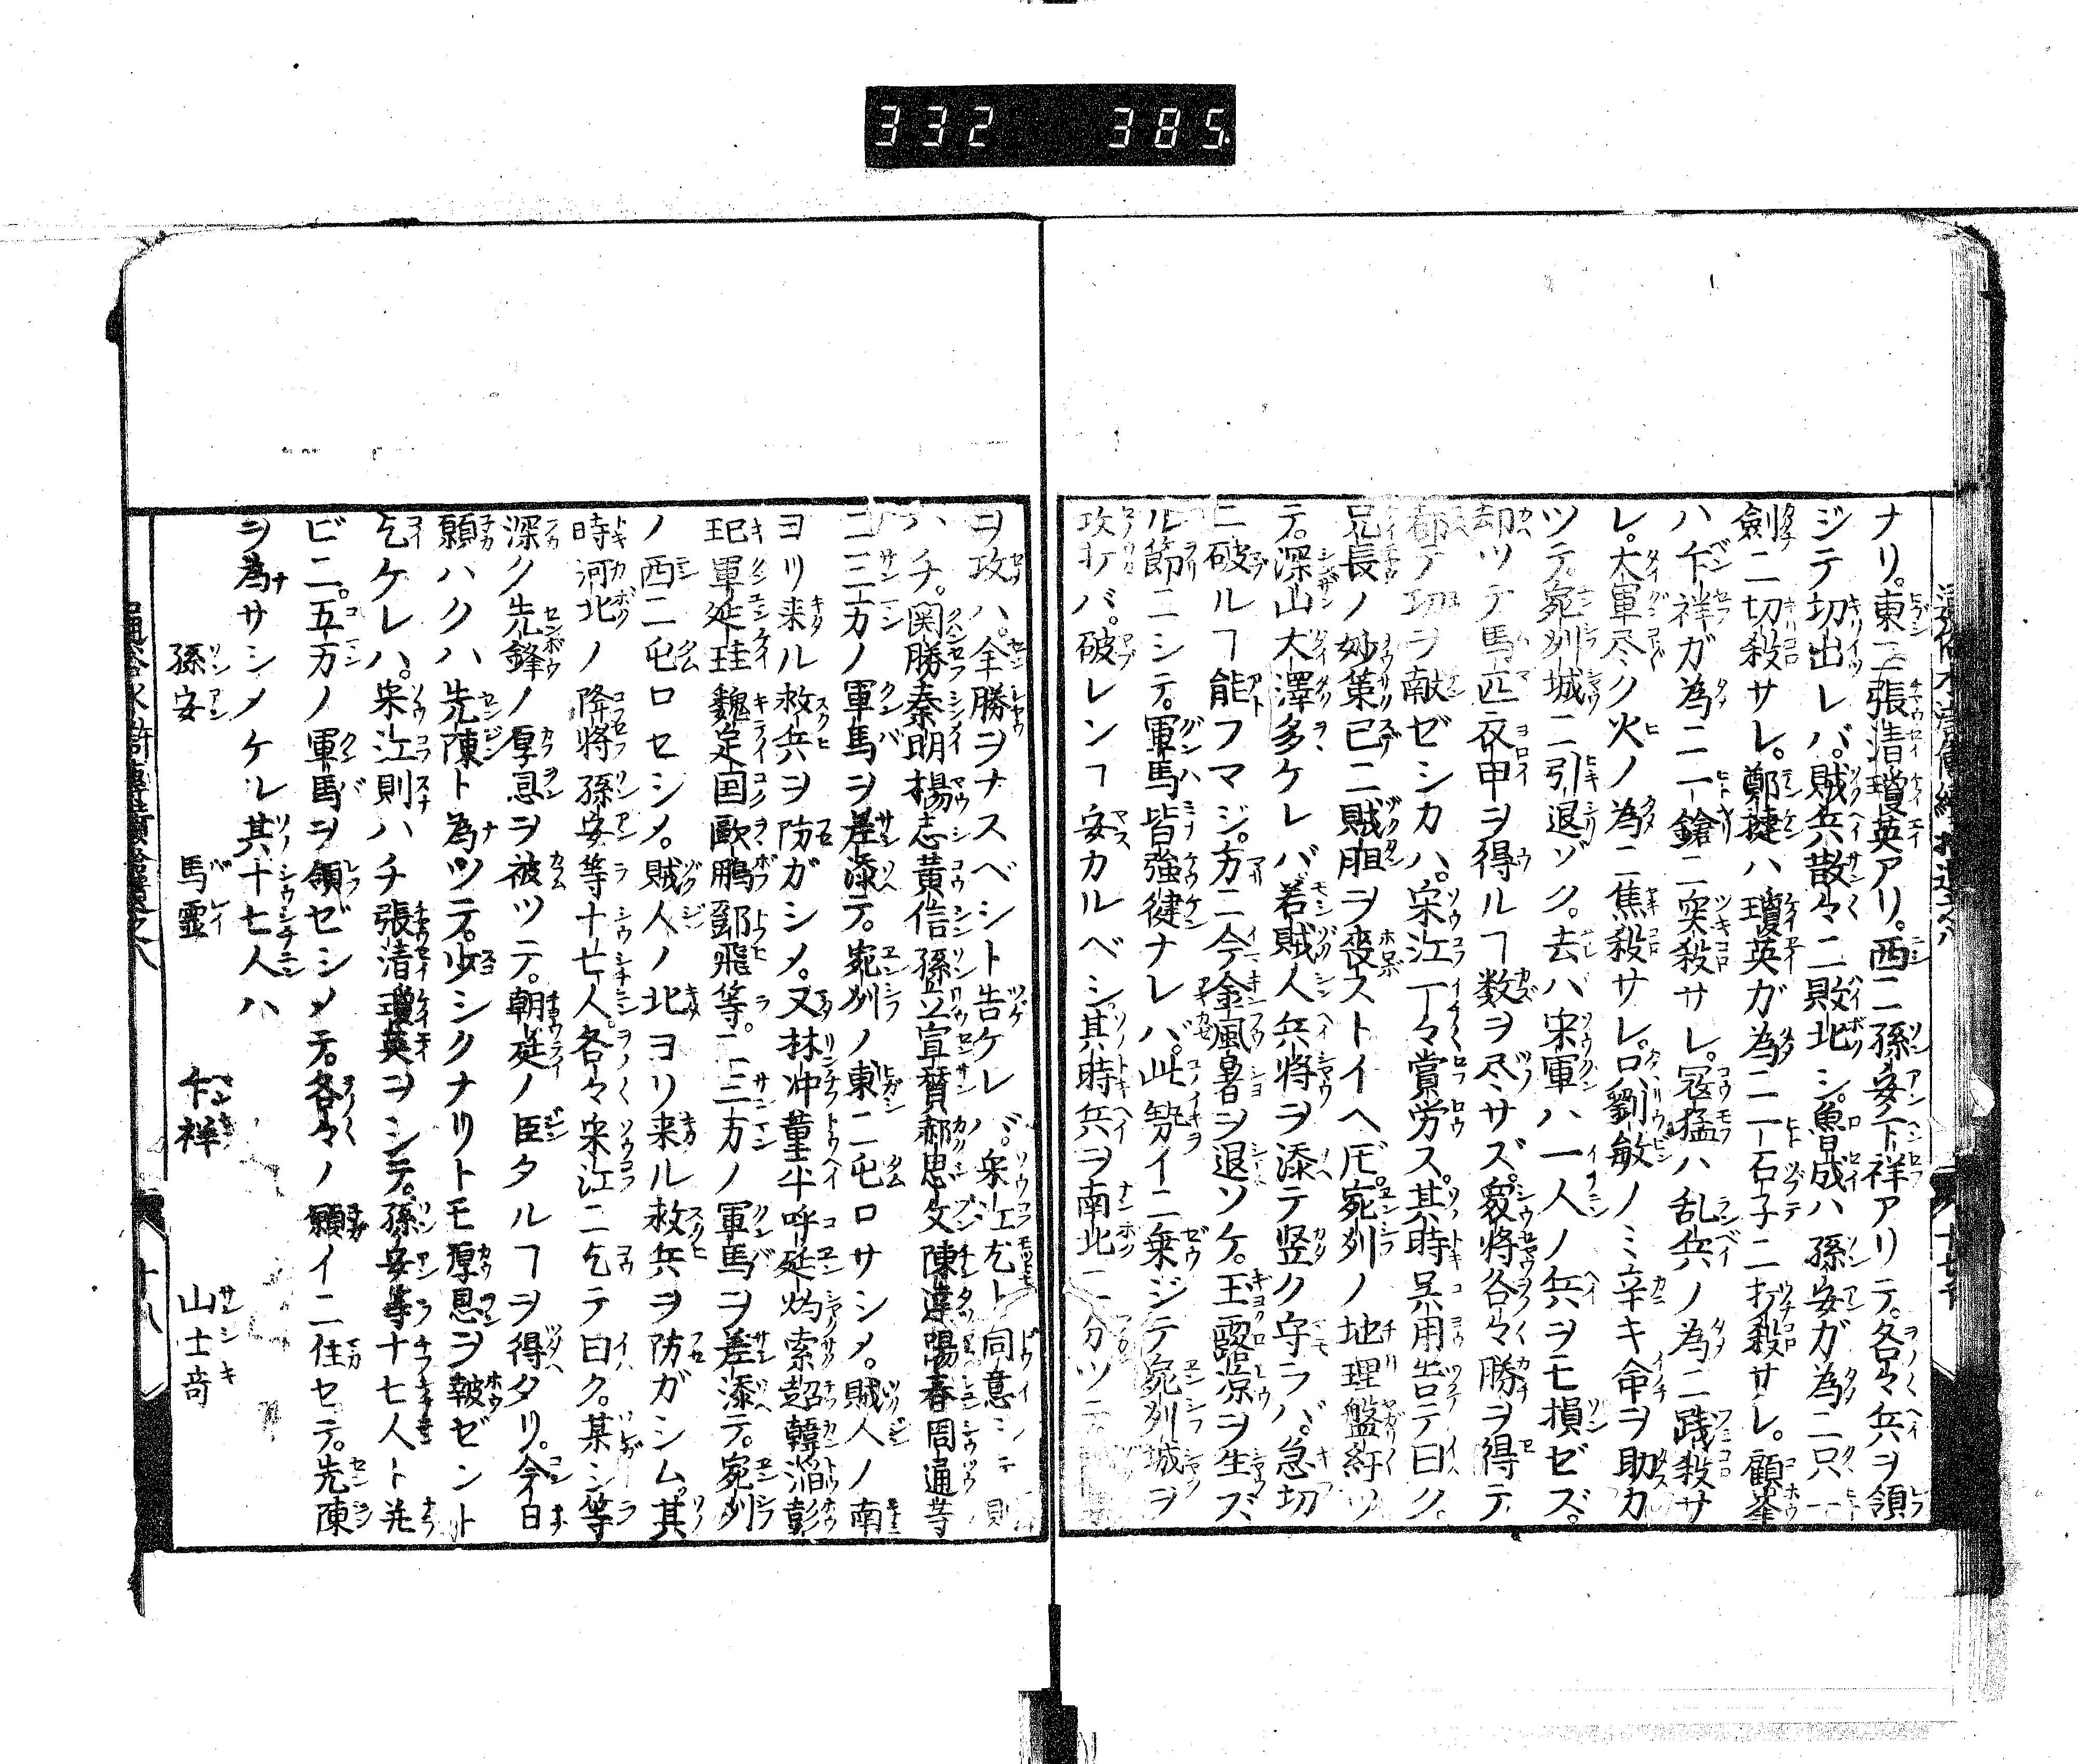 332 385
ナリ。東ニ張清瓊英アリ。西ニ孫安卞祥アリテ。各々兵ヲ領
ジテ切出レバ。賊兵散々ニ敗北シ。魯成ハ孫安ガ為ニ只一
劍ニ切殺サレ。鄭捷ハ瓊英ガ為ニ一石子ニ打殺サレ。顧岑
ハ卞祥ガ為ニ一鎗ニ突殺サレ。寇猛ハ乱兵ノ為ニ践殺サ
レ。大軍尽ク火ノ為ニ焦殺サレ。口劉敏ノミ辛キ命ヲ助カ
ツテ。宛州城ニ引退ゾク。去ハ宋軍ハ一人ノ兵ヲモ損ゼズ。
却ツテ馬匹衣甲ヲ得ルヿ数ヲ尽サズ。衆将各々勝ヲ得テ
都テ功ヲ献ゼシカハ。宋江一々賞労ス。其時呉用告テ曰ク。
兄長ノ妙策已ニ賊胆ヲ喪ストイヘ𪜈。宛州ノ地理盤紆ツ
テ。深山大澤多ケレバ。若賊人兵将ヲ添テ竪ク守ラバ。急切
ニ破ルヿ能フマジ。方ニ今金風暑ヲ退ソケ。玉露凉ヲ生ズ
ル節ニシテ。軍馬皆強健ナレバ。此勢イニ乗ジテ宛州城ヲ
攻打バ。破レンヿ安カルベシ。其時兵ヲ南北ニ分ツテ
ヲ攻ハ。全勝ヲナスベシト告ケレバ。宋江尤ト同意シテ則
ハチ。関勝秦明楊志黄信孫立宣贊郝思文陳達陽春周通等
ニ三万ノ軍馬ヲ差添テ。宛州ノ東ニ屯ロサシメ。賊人ノ南
ヨリ来ル救兵ヲ防ガシメ。又林冲董平呼延灼索超韓滔彭
玘單廷珪魏定国歐鵬鄧飛等。ニ三万ノ軍馬ヲ差添テ。宛州
ノ西ニ屯ロセシメ。賊人ノ北ヨリ来ル救兵ヲ防ガシム。其
時河北ノ降将孫安等十七人。各々宋江ニ乞テ曰ク。某シ等
深ク先鋒ノ厚恩ヲ被ツテ。朝廷ノ臣タルヿヲ得タリ。今日
願ハクハ先陳ト為ツテ。少シクナリトモ厚恩ヲ報ゼント
乞ケレハ。宋江則ハチ張清瓊英ヲシテ。孫安等十七人ト共
ビニ。五万ノ軍馬ヲ領ゼシメテ。各々ノ願イニ任セテ。先陳
ヲ為サシメケル其十七人ハ
孫安　馬霊　卞祥　山士奇